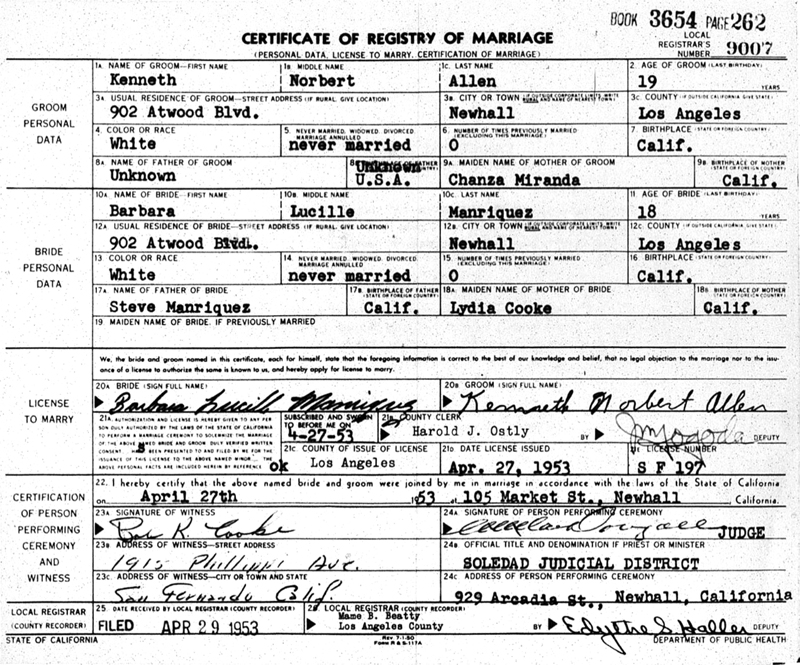 BOOK 3654 PAGE 262
CERTIFICATE OF REGISTRY OF MARRIAGE
(PERSONAL DATA, LICENSE TO MARRY, CERTIFICATION OF MARRIAGE)
LOCAL REGISTRAR'S NUMBER 9007
GROOM PERSONAL DATA
1A. NAME OF GROOM—FIRST NAME 1B. MIDDLE NAME 1C. LAST NAME 2. AGE OF GROOM (LAST BIRTHDAY)
Kenneth Norbert Allen 19 YEARS
3A. USUAL RESIDENCE OF GROOM—STREET ADDRESS (IF RURAL, GIVE LOCATION) 3B. CITY OR TOWN (IF OUTSIDE CORPORATE LIMITS, WRITE RURAL AND NAME OF NEAREST TOWN) 3C. COUNTY (IF OUTSIDE CALIFORNIA GIVE STATE)
902 Atwood Blvd. Newhall Los Angeles
4. COLOR OR RACE 5. NEVER MARRIED, WIDOWED, DIVORCED, MARRIAGE ANNULLED 6. NUMBER OF TIMES PREVIOUSLY MARRIED (EXCLUDING THIS MARRIAGE) 7. BIRTHPLACE (STATE OR FOREIGN COUNTRY)
White never married 0 Calif.
8A. NAME OF FATHER OF GROOM 9A. MAIDEN NAME OF MOTHER OF GROOM 9B. BIRTHPLACE OF MOTHER (STATE OR FOREIGN COUNTRY)
Unknown U.S.A. Chanza Miranda Calif.
BRIDE PERSONAL DATA
10A. NAME OF BRIDE—FIRST NAME 10B. MIDDLE NAME 10C. LAST NAME 11. AGE OF BRIDE (LAST BIRTHDAY)
Barbara Lucille Manriquez 18 YEARS
12A. USUAL RESIDENCE OF BRIDE—STREET ADDRESS (IF RURAL, GIVE LOCATION) 12B. CITY OR TOWN (IF OUTSIDE CORPORATE LIMITS, WRITE RURAL AND NAME OF NEAREST TOWN) 12C. COUNTY (IF OUTSIDE CALIFORNIA GIVE STATE)
902 Atwood Blvd. Newhall Los Angeles
13. COLOR OR RACE 14. NEVER MARRIED, WIDOWED, DIVORCED, MARRIAGE ANNULLED 15. NUMBER OF TIMES PREVIOUSLY MARRIED (EXCLUDING THIS MARRIAGE) 16. BIRTHPLACE (STATE OR FOREIGN COUNTRY)
White never married 0 Calif.
17A. NAME OF FATHER OF BRIDE 17B. BIRTHPLACE OF FATHER (STATE OR FOREIGN COUNTRY) 18A. MAIDEN NAME OF MOTHER OF BRIDE 18B. BIRTHPLACE OF MOTHER (STATE OR FOREIGN COUNTRY)
Steve Manriquez Calif. Lydia Cooke Calif.
19. MAIDEN NAME OF BRIDE, IF PREVIOUSLY MARRIED
LICENSE TO MARRY
We, the bride and groom named in this certificate, each for himself, state that the foregoing information is correct to the best of our knowledge and belief, that no legal objection to the marriage nor to the issuance of a license to authorize the same is known to us, and hereby apply for license to marry.
20A. BRIDE (SIGN FULL NAME) 20B. GROOM (SIGN FULL NAME)
Barbara Lucille Manriquez Kenneth Norbert Allen
21A. AUTHORIZATION AND LICENSE IS HEREBY GIVEN TO ANY PERSON DULY AUTHORIZED BY THE LAWS OF THE STATE OF CALIFORNIA TO PERFORM A MARRIAGE CEREMONY TO SOLEMNIZE THE MARRIAGE OF THE ABOVE NAMED BRIDE AND GROOM.
SUBSCRIBED AND SWORN TO BEFORE ME ON 4-27-53
21B. COUNTY CLERK
Harold J. Ostly BY DEPUTY
21C. COUNTY OF ISSUE OF LICENSE 21D. DATE LICENSE ISSUED LICENSE NUMBER
ok Los Angeles Apr. 27, 1953 S F 197
CERTIFICATION OF PERSON PERFORMING CEREMONY AND WITNESS
22. I hereby certify that the above named bride and groom were joined by me in marriage in accordance with the laws of the State of California
on April 27th 1953 at 105 Market St., Newhall, California.
23A. SIGNATURE OF WITNESS 24A. SIGNATURE OF PERSON PERFORMING CEREMONY
Cooke JUDGE
23B. ADDRESS OF WITNESS—STREET ADDRESS 24B. OFFICIAL TITLE AND DENOMINATION IF PRIEST OR MINISTER
1915 Phillippi Ave. SOLEDAD JUDICIAL DISTRICT
23C. ADDRESS OF WITNESS—CITY OR TOWN AND STATE 24C. ADDRESS OF PERSON PERFORMING CEREMONY
San Fernando Calif. 929 Arcadia St., Newhall, California
LOCAL REGISTRAR (COUNTY RECORDER)
25. DATE RECEIVED BY LOCAL REGISTRAR (COUNTY RECORDER) 26. LOCAL REGISTRAR (COUNTY RECORDER)
FILED APR 29 1953 Mame B. Beatty Los Angeles County BY Edythe S. Haller DEPUTY
STATE OF CALIFORNIA REV 7-1-50 FORM R & S-117A DEPARTMENT OF PUBLIC HEALTH